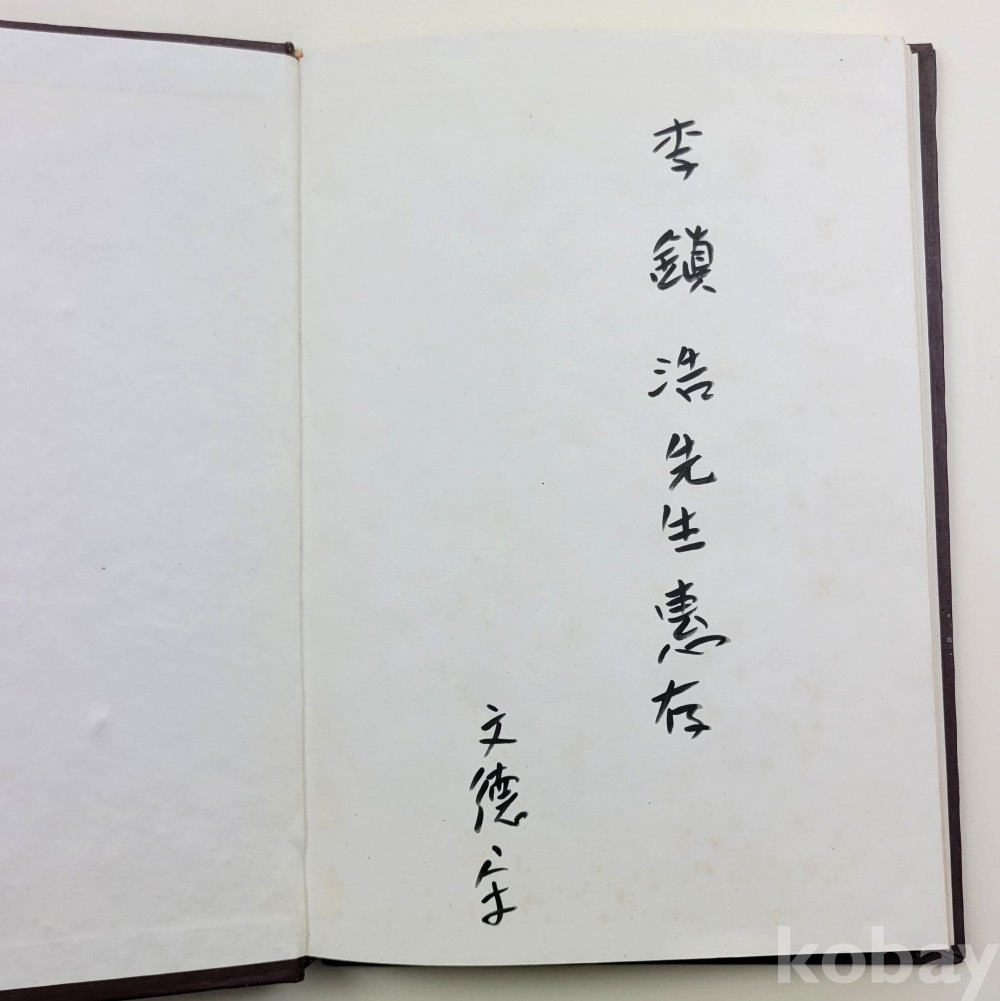 李鎮浩先生惠存
文德守
kobay